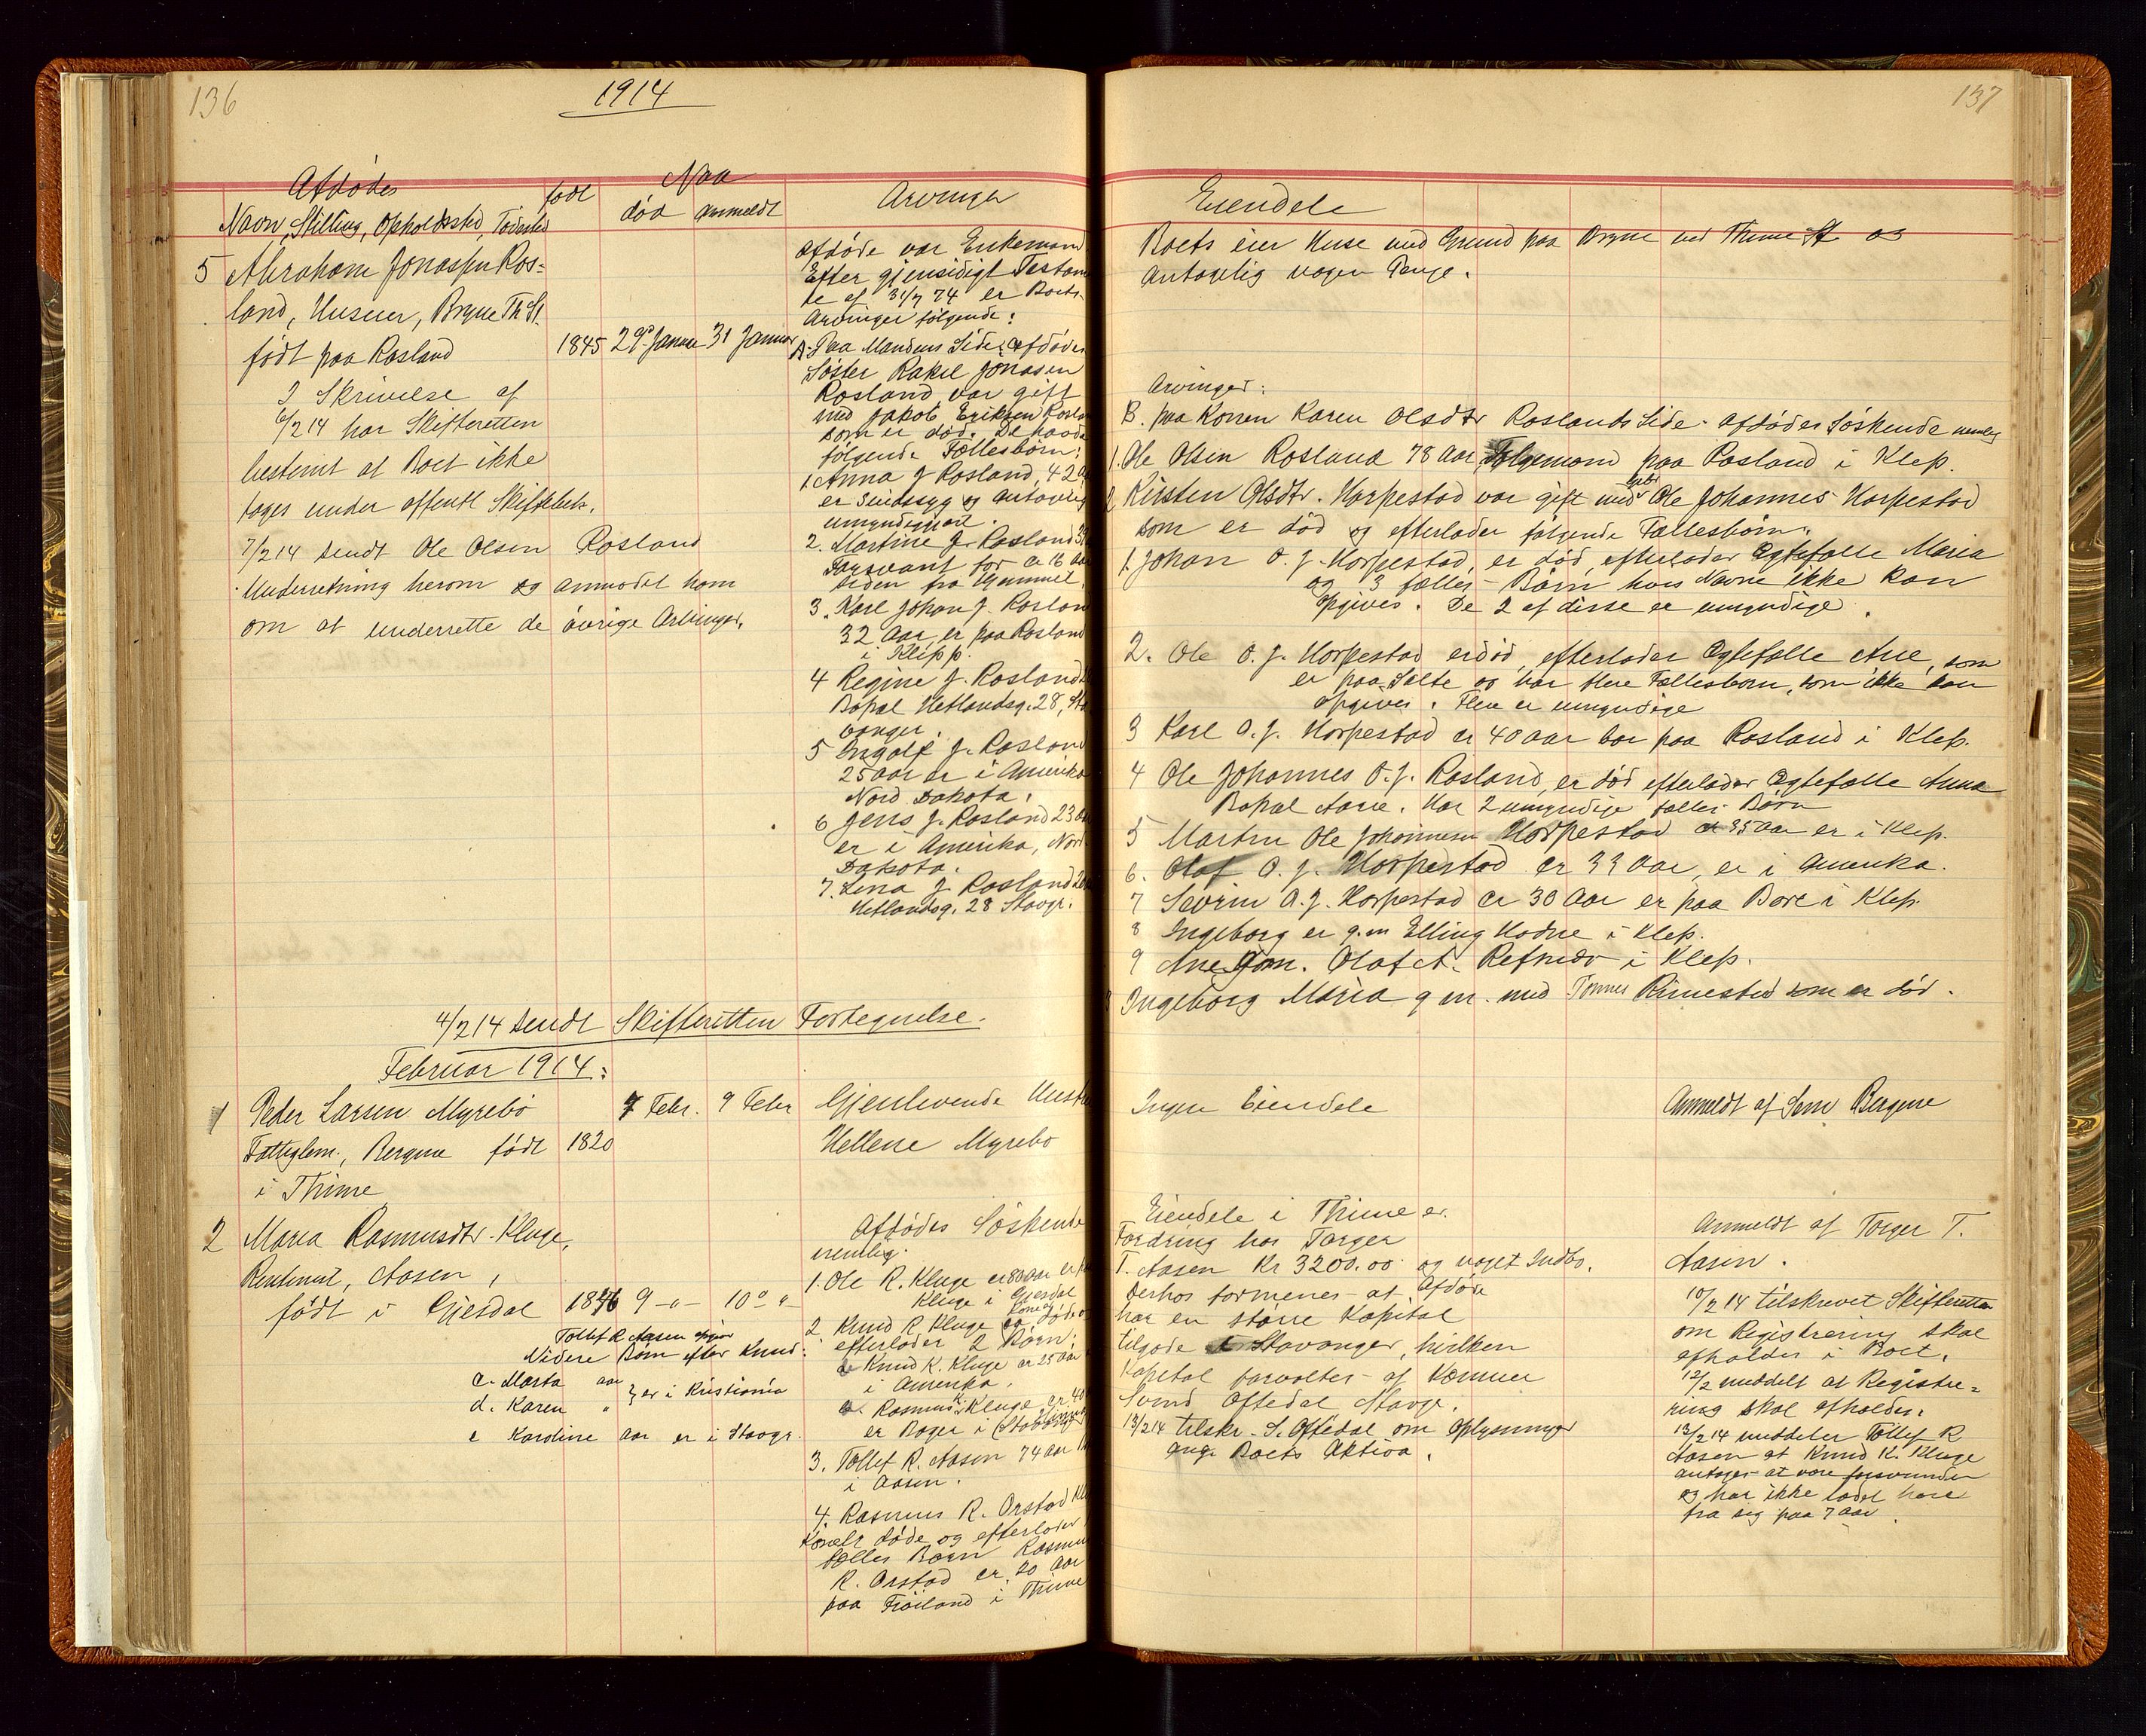 136
1914
Afdødes
Naar
Navn, Stilling, Opholdssted, Fødested
født
død
anmeldt
Arvinger
5 Abraham Jonassen Ros-
land, Huseier, Bryne Th St.
født paa Rosland
1845 29de Januar 31 Januar
I Skrivelse af
6/2 14 har Skifteretten
bestemt at Boet ikke
tages under offentl Skiftebeh.
7/2 14 sendt Ole Olsen Rosland
Underretning herom og anmodet ham
om at underrette de øvrige Arvinger.
Afdøde var Enkemand
Efter gjensidigt Testam
te af 31/7 74 er Boets
Arvinger følgende:
A. Paa Mandens Side: Afdødes
Søster Rakel Jonasen
Rosland var gift
med Jakob Eriksen Rosla
som er død. De havde
følgende Fællesbørn:
1. Anna J Rosland, 42 a
er Sindssyg og antagelig
umyndiggjort.
2. Martine J. Rosland 3
Forsvant for ca 16 Aar
siden fra Hjemmet.
3. Karl Johan J. Roslan
32 Aar, er paa Rosland
i Klepp.
4 Regine J. Rosland
Bopæl Hetlandsg. 28, Sta
vanger.
5 Ingolf J. Roslan
25 aar er i Amerika
Nord Dakota.
6 Jens J. Rosland 23 aa
er i Amerika, Nord
Dakota.
7. Lena J Rosland 20
Hetlandsg. 28 Stavgr.
4/2 14 sendt Skifteretten Fortegnelse.
Februar 1914:
1 Peder Larsen Myrebø
Fattiglem., Bergene født 1820
i Thime
7 Febr. 9 Febr
Gjenlevende Hustr
Hellene Myrebø
2 Maria Rasmusdtr. Kluge,
Rentenist, Aasen,
født i Gjesdal 1846 9 -"- 10de "-
Tollef R Aasen opgiver
Videre Børn efter Knud:
c. Marta aar
d. Karen " } er i Kristiania
e Karoline aar er i Stavgr.
Afdødes Søskende
nemlig:
1. Ole R. Kluge er 80 aar er paa
Kluge i Gjesdal
2. Knud R Kluge og Kone er døde og
efterlader 2 Børn:
a Knud K. Kluge er 25 aar
i Amerika.
b. Rasmus K. Kluge er 40
er Bager i (Stavanger)
3. Tollef R. Aasen 74 aar
i Aasen.
4. Rasmus R. Orstad
Konen døde og efterlader
fælles Barn Rasmus
R. Orstad er 20 Aar
paa Frøiland i Thime
137
Eiendele
Boets eier Huse med Grund paa Bryne ved Thime St og
antagelig nogen Penge.
Arvinger:
B. paa Konen Karen Olsdtr Roslands Side. Afdødes Søskende nemlig
1. Ole Olsen Rosland 78 Aar Følgemand paa Rosland i Klep.
2 Kirsten Olsdtr. Horpestad var gift med Ole Johannes Horpestad
som er død og efterlader følgende Fællesbørn.
1. Johan O. J. Horpestad, er død, efterlader Ægtefælle Maria
og 3 fælles-Børn hvis Navne ikke kan
opgives. De 2 af disse er umyndige.
2. Ole O. J. Horpestad er død, efterlader Ægtefælle Ane, som
er paa Salte og har flere Fællesbørn, som ikke kan
opgives. Flere er umyndige
3 Karl O. J. Horpestad er 40 aar bor paa Rosland i Klep.
4 Ole Johannes O. J. Rosland, er død efterlader Ægtefælle Anna
Bopæl Aarre. Har 2 umyndige fælles Børn
5 Martin Ole Johannesen Horpestad er 35 aar er i Klep.
6. Olaf O. J. Horpestad er 33 aar, er i Amerika.
7 Sevrin O. J. Horpestad er 30 Aar er paa Bore i Klep.
8 Ingeborg er g.m Elling Hodne i Klep.
9 Ane g.m. Olaf A. Refnæs i Klep.
3 Ingeborg Maria g m. med Tønnes Rimestad som er død.
Ingen Eiendele
Anmeldt af Søn Bergene
Eiendele i Thime er
Fordring hos Torger
T. Aasen Kr 3200.00 og noget Indbo.
Derhos formenes at Afdøde
har en større Kapital
tilgode i Stavanger, hvilken
Kapital forvaltes af Kæmner
Svend Oftedal Stavgr.
13/2 14 tilskr. S. Oftedal om Oplysninger
ang. Boets Aktiva.
Anmeldt af Torger T.
Aasen.
10/2 14 tilskrevet Skifteretten
om Registrering skal
afholdes i Boet.
12/2 meddelt at Registre-
ring skal afholdes.
13/2 14 meddeler Tollef R
Aasen at Knud K. Kluge
antages at være forsvunden
og har ikke ladet høre
fra sig paa 7 Aar.